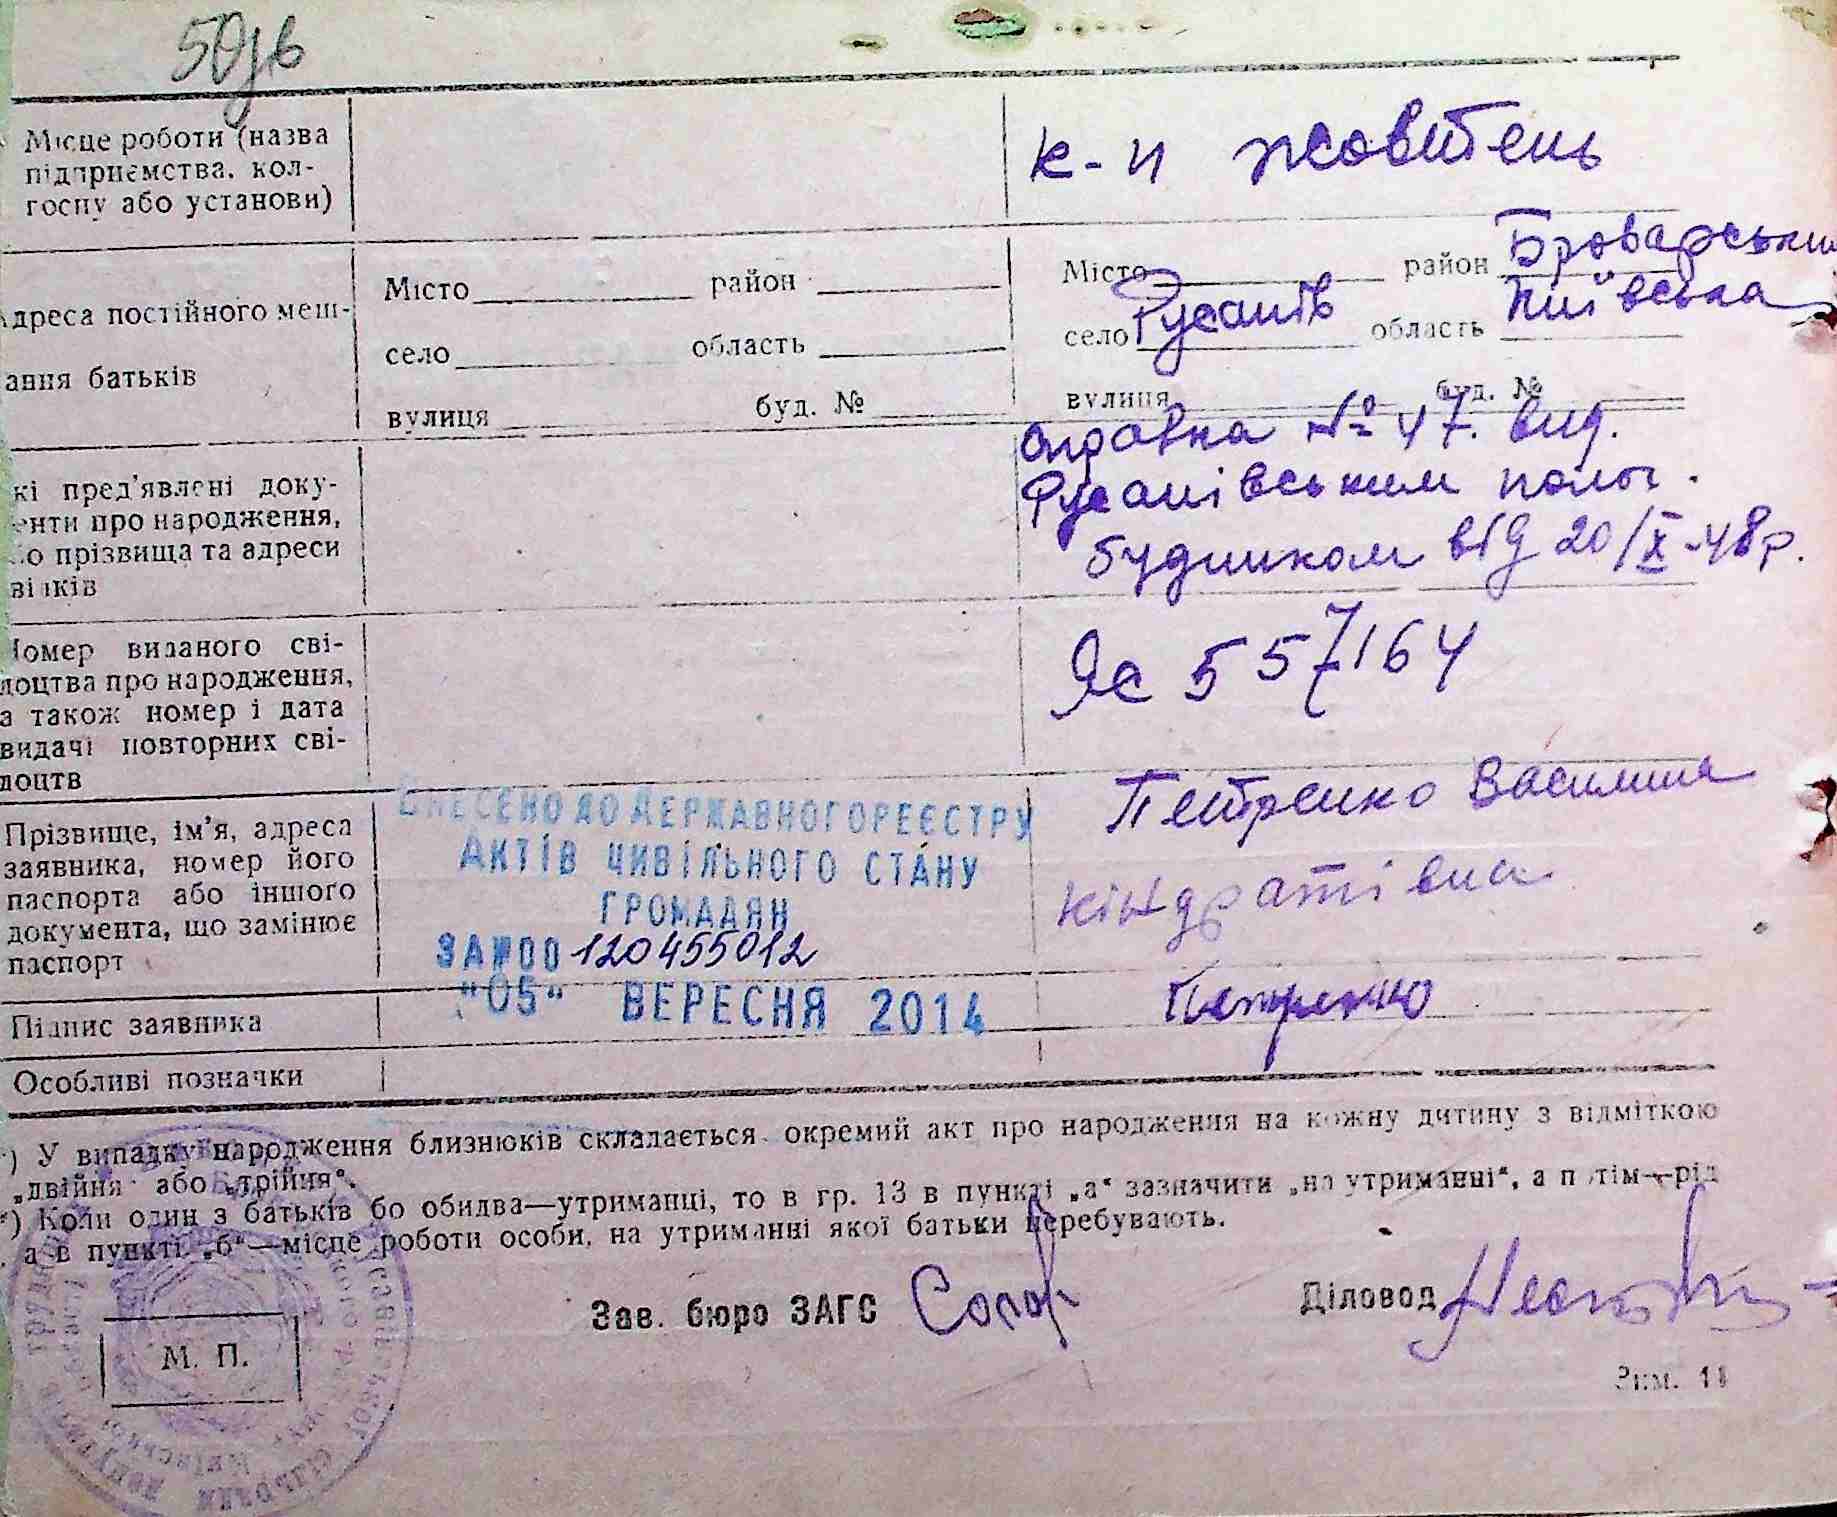 50зв
Місце роботи (назва
підприємства, кол-
госпу або установи)
к-п жовтень
Адреса постійного меш-
ання батьків
Місто район
село область
вулиця буд. №
Місто район Броварський
село Русанів область Київська
вулиця буд. №
кі пред'явлені доку-
енти про народження,
бо прізвища та адреси
відків
справка № 47. вид.
Русанівським полог.
будинком від 20/X-48р.
Номер виданого сві-
доцтва про народження,
а також номер і дата
видачі повторних сві-
доцтв
Яс 557164
Прізвище, ім'я, адреса
заявника, номер його
паспорта або іншого
документа, що замінює
паспорт
ВНЕСЕНО ДО ДЕРЖАВНОГО РЕЄСТРУ
АКТІВ ЦИВІЛЬНОГО СТАНУ
ГРОМАДЯН
ЗА №00 120455012
"05" ВЕРЕСНЯ 2014
Петренко Василина
Кіндратівна
Підпис заявника
Петренко
Особливі позначки
*) У випадку народження близнюків складається окремий акт про народження на кожну дитину з відміткою
„двійня" або „трійня".
*) Коли один з батьків бо обидва—утриманці, то в гр. 13 в пункті „а" зазначити „на утриманні", а потім—рід
а в пункті „б"—місце роботи особи, на утриманні якої батьки перебувають.
Зав. бюро ЗАГС
Діловод
М. П.
Зам. 11